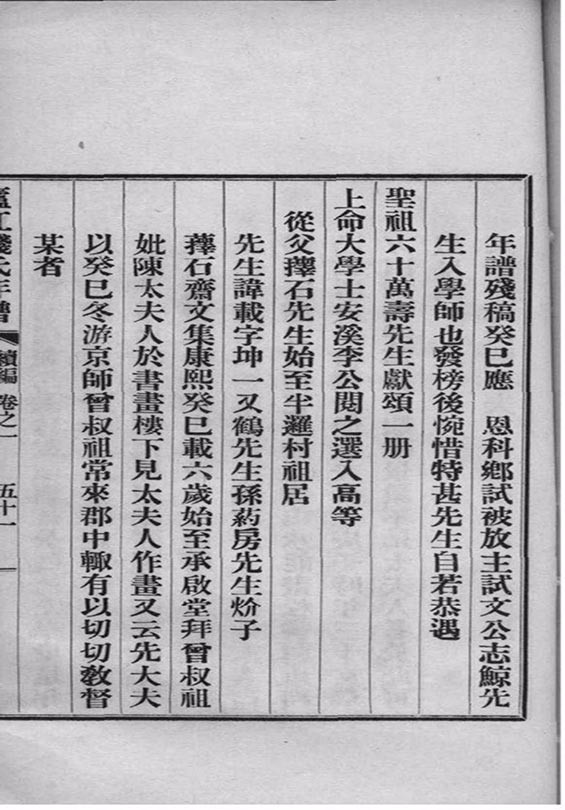 年譜殘稿癸巳應　恩科鄉試被放主試文公志鯨先
生入學師也發榜後惋惜特甚先生自若恭遇
聖祖六十萬壽先生獻頌一册
上命大學士安溪李公閱之選入高等
從父蘀石先生始至半邏村祖居
先生諱載字坤一又鶴先生孫葯房先生炌子
蘀石齋文集康熙癸巳載六歲始至承啟堂拜曾叔祖
妣陳太夫人於書畫樓下見太夫人作畫又云先大夫
以癸巳冬游京師曾叔祖常來郡中輙有以切切敎督
某者
廬江錢氏年譜　續編　卷之一　五十一